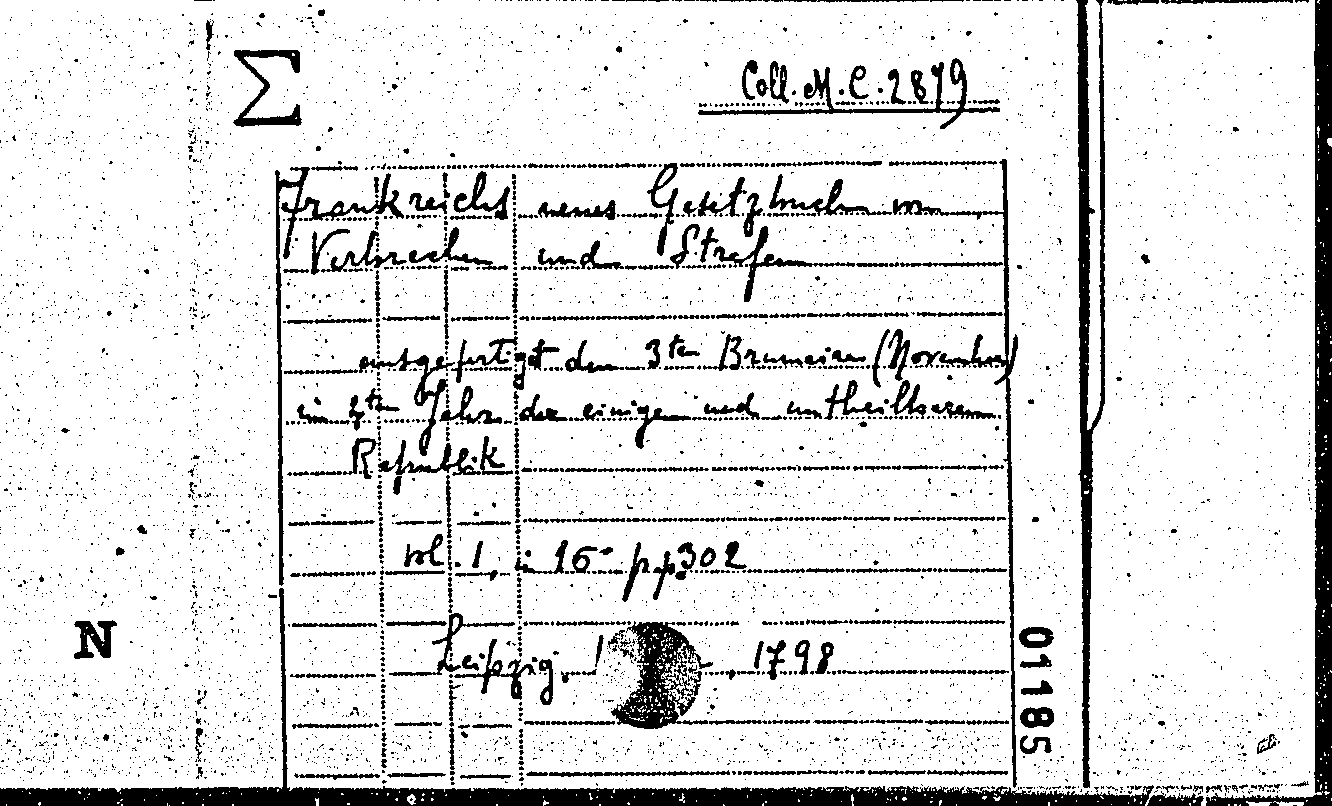 Σ
Coll. M. C. 2879
Frankreichs neues Gesetzbuch von
Verbrechen und Strafen
ausgefertiget den 3ten Brumaire (November)
im 4ten Jahre der einigen und untheilbaren
Republik
vol. 1, in 16° pp. 302
Leipzig, 1798
N
01185